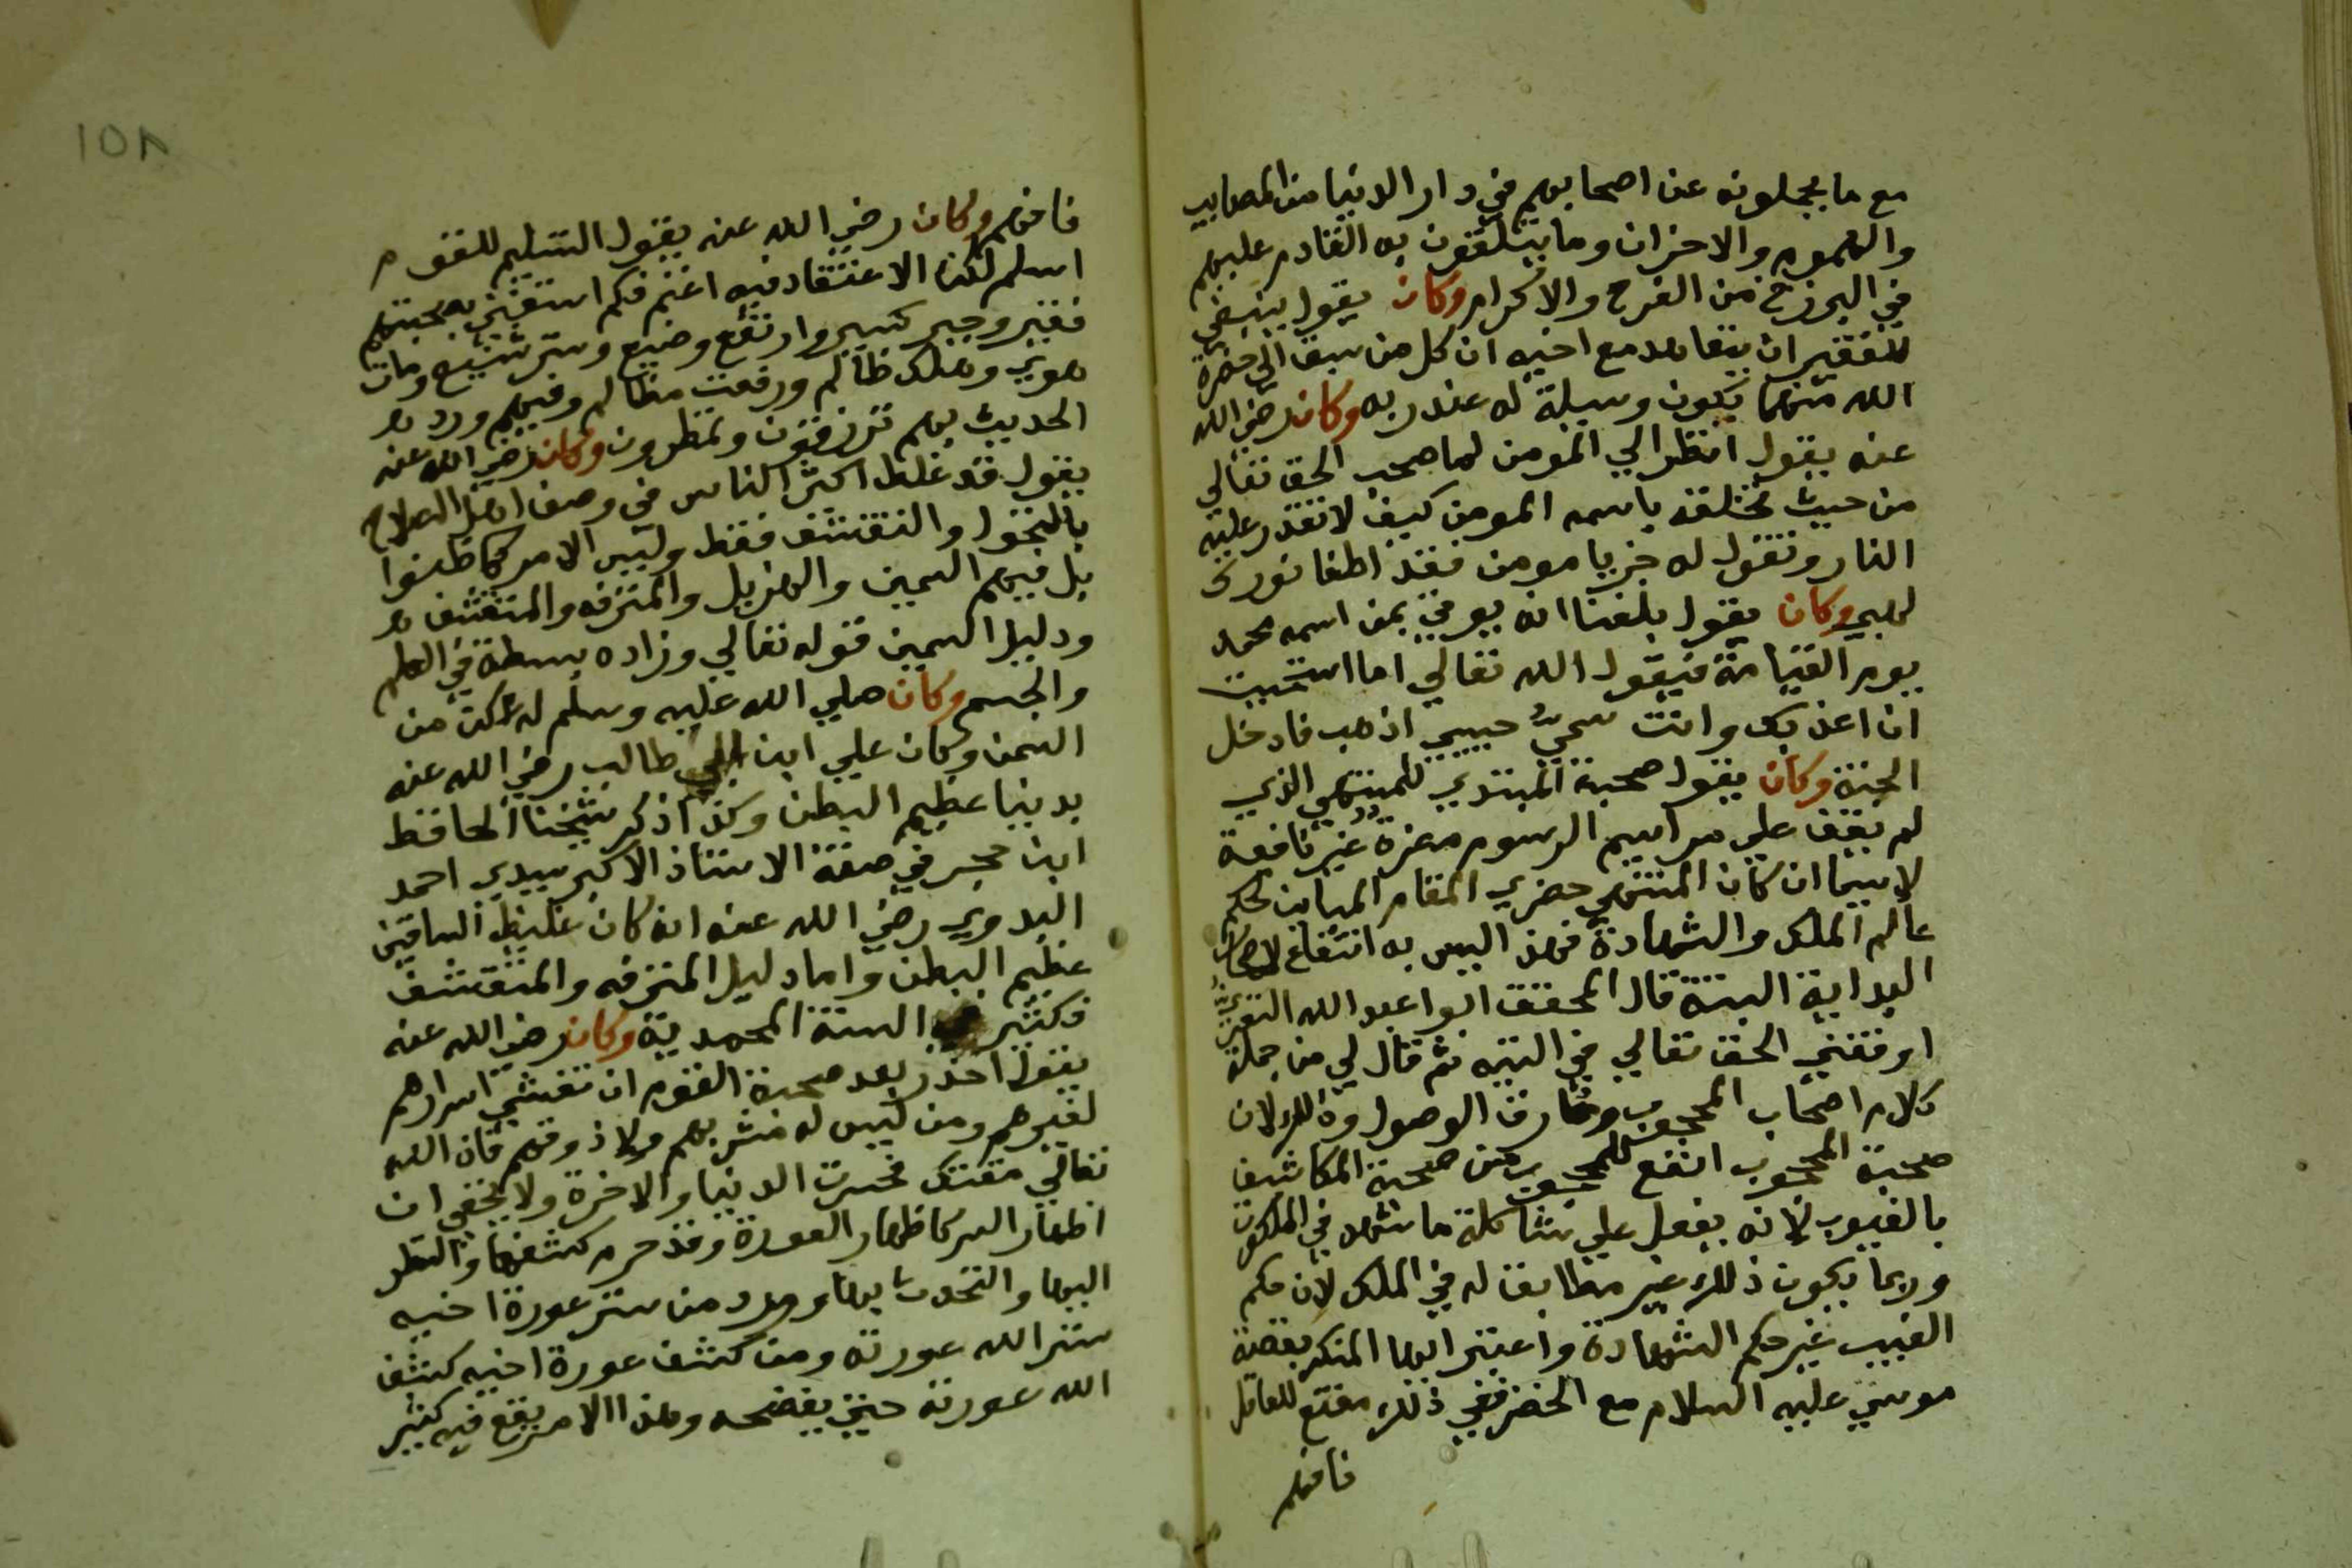 مع ما يحملونه عن اصحابهم في دار الدنيا من المصايب
والهموم والاحزان وما يتلقون به القادم عليهم
في البرزخ من الفرح والاكرام وكان يقول ينبغي
للفقير ان يتعاهد مع اخيه ان كل من سبق الي حضرة
الله منهما يكون وسيلة له عند ربه وكان رضي الله
عنه يقول انظر الي المومن لما صحب الحق تعالي
من حيث تخلقه باسمه المومن كيف لا تقدر عليه
النار وتقول له جز يا مومن فقد اطفا نورك
لهبي وكان يقول بلغنا انه يوتي بمن اسمه محمد
يوم القيامة فيقول الله تعالي اما استحييت
ان اعذبك وانت سمي حبيبي اذهب فادخل
الجنة وكان يقول صحبة المبتدي للمنتهي الذي
لم يقف علي مراسيم الرسوم مضرة غير نافعة
لاسيما ان كان المنتهي حضري المقام المباين لحكم
عالم الملك والشهادة فهذا ليس به انتفاع لاصحاب
البداية البتة قال المحقق ابوا عبد الله النفري
اوقفني الحق تعالي في التيه ثم قال لي من جملة
كلام اصحاب المحجوب وفارق الوصول وذلك لان
صحبة المحجوب انفع للمحجوب من صحبة المكاشف
بالغيوب لانه يفعل علي مشاكلة ما شهد في الملكوت
وربما يكون ذلك غير مطابق له في الملك لان حكم
الغيب غير حكم الشهادة واعتبر ايها المنكر بقصة
موسي عليه السلام مع الخضر ففي ذلك مقنع للعاقل
فافهم
١٥٨
فافهم وكان رضي الله عنه يقول التسليم للقوم
اسلم لكن الاعتقاد فيه اغنم فكم استغني بصحبتهم
فقير وجبر كسير وارتفع وضيع وستر شنيع ومات
هوي وهلك ظالم ورفعت مظالم وفيهم ورد
الحديث بهم ترزقون وتمطرون وكان رضي الله عنه
يقول قد غلط اكثر الناس في وصف اهل الصلاح
بالنحول والتقشف فقط وليس الامر كما ظنوا
بل فيهم السمين والهزيل والمترفه والمتقشف
ودليل السمين قوله تعالي وزاده بسطة في العلم
والجسم وكان صلي الله عليه وسلم له عكن من
السمن وكان علي ابن ابي طالب رضي الله عنه
بدينا عظيم البطن وكذا ذكر شيخنا الحافظ
ابن حجر في صفة الاستاذ الاكبر سيدي احمد
البدوي رضي الله عنه انه كان غليظ الساقين
عظيم البطن واما دليل المترفه والمتقشف
فكثير في السنة المحمدية وكان رضي الله عنه
يقول احذر بعد صحبة القوم ان تفشي اسرارهم
لغيرهم ومن ليس له مشربهم ولا ذوقهم فان الله
تعالي مقتك فخسرت الدنيا والاخرة ولا يخفي ان
اظهار السر كاظهار العورة وقد حرم كشفها والنظر
اليها والتحدث بها وورد من ستر عورة اخيه
ستر الله عورته ومن كشف عورة اخيه كشف
الله عورته حتي يفضحه وهذا الامر يقع فيه كثير